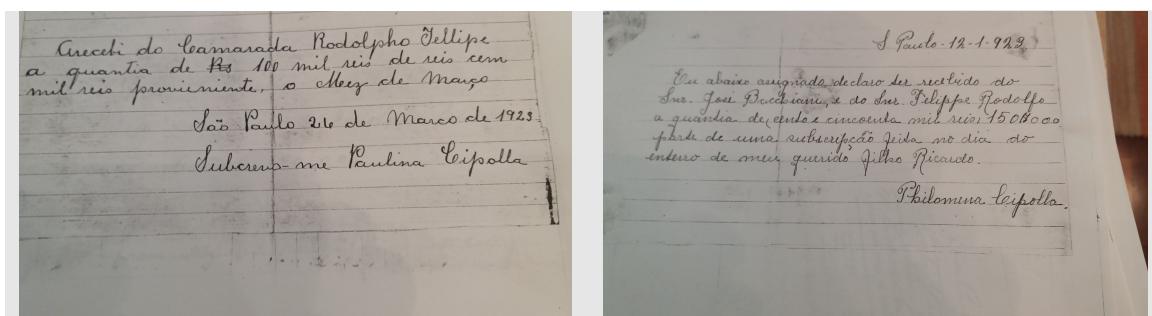 Arecebi do Camarada Rodolpho Fellipe
a quantia de R$ 100 mil reis de reis cem
mil reis provieniente, o Mez de Março
São Paulo 26 de Março de 1923
Subcrevo-me Paulina Cipolla
S Paulo-12-1-923
Eu abaixo assignado, declaro ser recebido do
Snr. José Bacchiani, e do Snr. Felippe Rodolfo
a quantia de, cento e cincoenta mil reis, 150$000
parte de uma subscripção feita no dia do
enterro de meu querido filho Ricardo.
Philomena Cipolla.